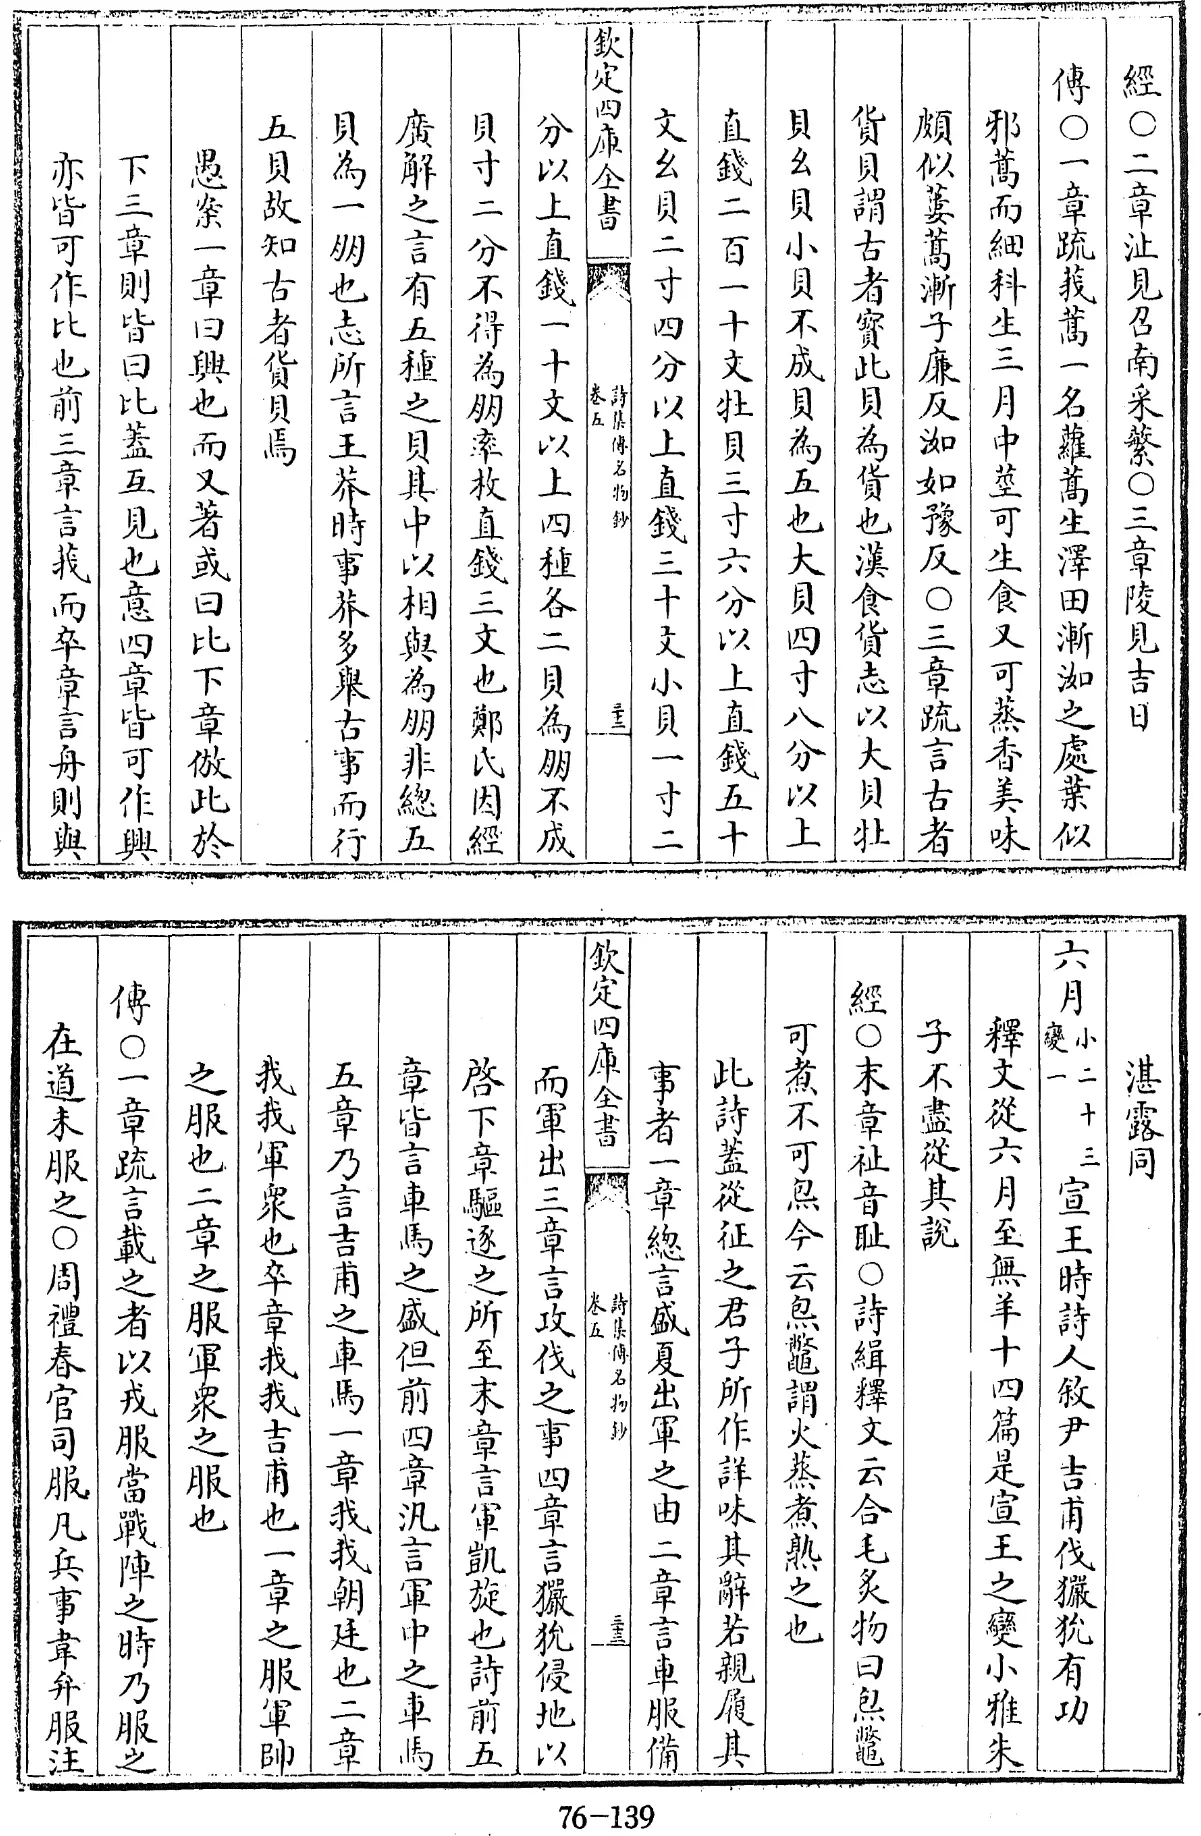 經○二章沚見召南采蘩○三章陵見吉日
傳○一章疏莪蒿一名蘿蒿生澤田漸洳之處葉似
邪蒿而細科生三月中莖可生食又可蒸香美味
頗似蔞蒿漸子廉反洳如豫反○三章疏言古者
貨貝謂古者寶此貝為貨也漢食貨志以大貝牡
貝幺貝小貝不成貝為五也大貝四寸八分以上
直錢二百一十文牡貝三寸六分以上直錢五十
文幺貝二寸四分以上直錢三十文小貝一寸二
欽定四庫全書
詩集傳名物鈔
卷五
三三
分以上直錢一十文以上四種各二貝為朋不成
貝寸二分不得為朋率枚直錢三文也鄭氏因經
廣解之言有五種之貝其中以相與為朋非總五
貝為一朋也志所言王莽時事莽多舉古事而行
五貝故知古者貨貝焉
愚案一章曰興也而又著或曰比下章倣此於
下三章則皆曰比蓋互見也意四章皆可作興
亦皆可作比也前三章言莪而卒章言舟則與
湛露同
六月小二十三變一宣王時詩人敘尹吉甫伐玁狁有功
釋文從六月至無羊十四篇是宣王之變小雅朱
子不盡從其說
經○末章祉音耻○詩緝釋文云合毛炙物曰炰鼈
可煮不可炰今云炰鼈謂火蒸煮熟之也
此詩蓋從征之君子所作詳味其辭若親履其
事者一章總言盛夏出軍之由二章言車服備
欽定四庫全書
詩集傳名物鈔
卷五
三三
而軍出三章言攻伐之事四章言玁狁侵地以
啓下章驅逐之所至末章言軍凱旋也詩前五
章皆言車馬之盛但前四章汎言軍中之車馬
五章乃言吉甫之車馬一章我我朝廷也二章
我我軍衆也卒章我我吉甫也一章之服軍帥
之服也二章之服軍衆之服也
傳○一章疏言載之者以戎服當戰陣之時乃服之
在道未服之○周禮春官司服凡兵事韋弁服注
76-139